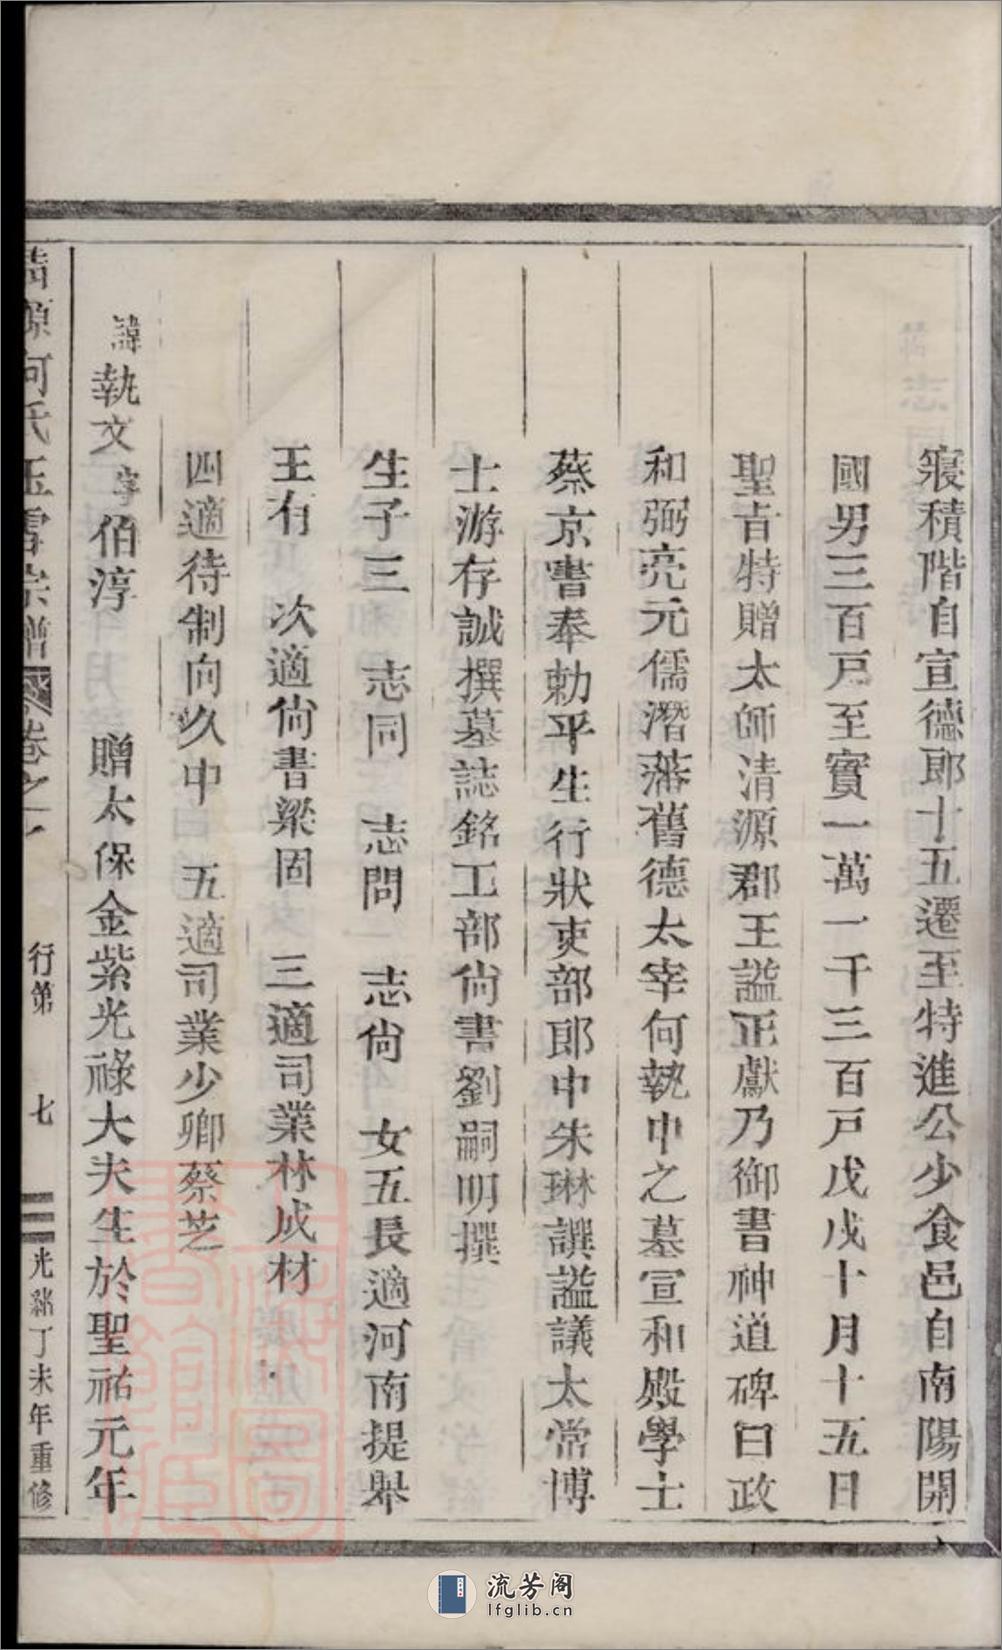 寢積階自宣德郎十五遷至特進公少食邑自南陽開
國男三百戸至實一萬一千三百戸戊戌十月十五日
聖旨特贈太師清源郡王謚正獻乃御書神道碑曰政
和弼亮元儒潛藩舊德太宰何執中之墓宣和殿學士
蔡京書奉勅平生行狀吏部郎中朱琳譔謚議太常博
士游存誠撰墓誌銘工部尙書劉嗣明撰
生子三 志同 志問 志尙 女五長適河南提舉
王有 次適尙書梁固 三適司業林成材
四適待制向久中 五適司業少卿蔡芝
諱執文字伯淳 贈太保金紫光祿大夫生於聖祐元年
源何氏玉雪宗譜 卷之一 行第 七 光緒丁未年重修
流芳阁
lfglib.cn